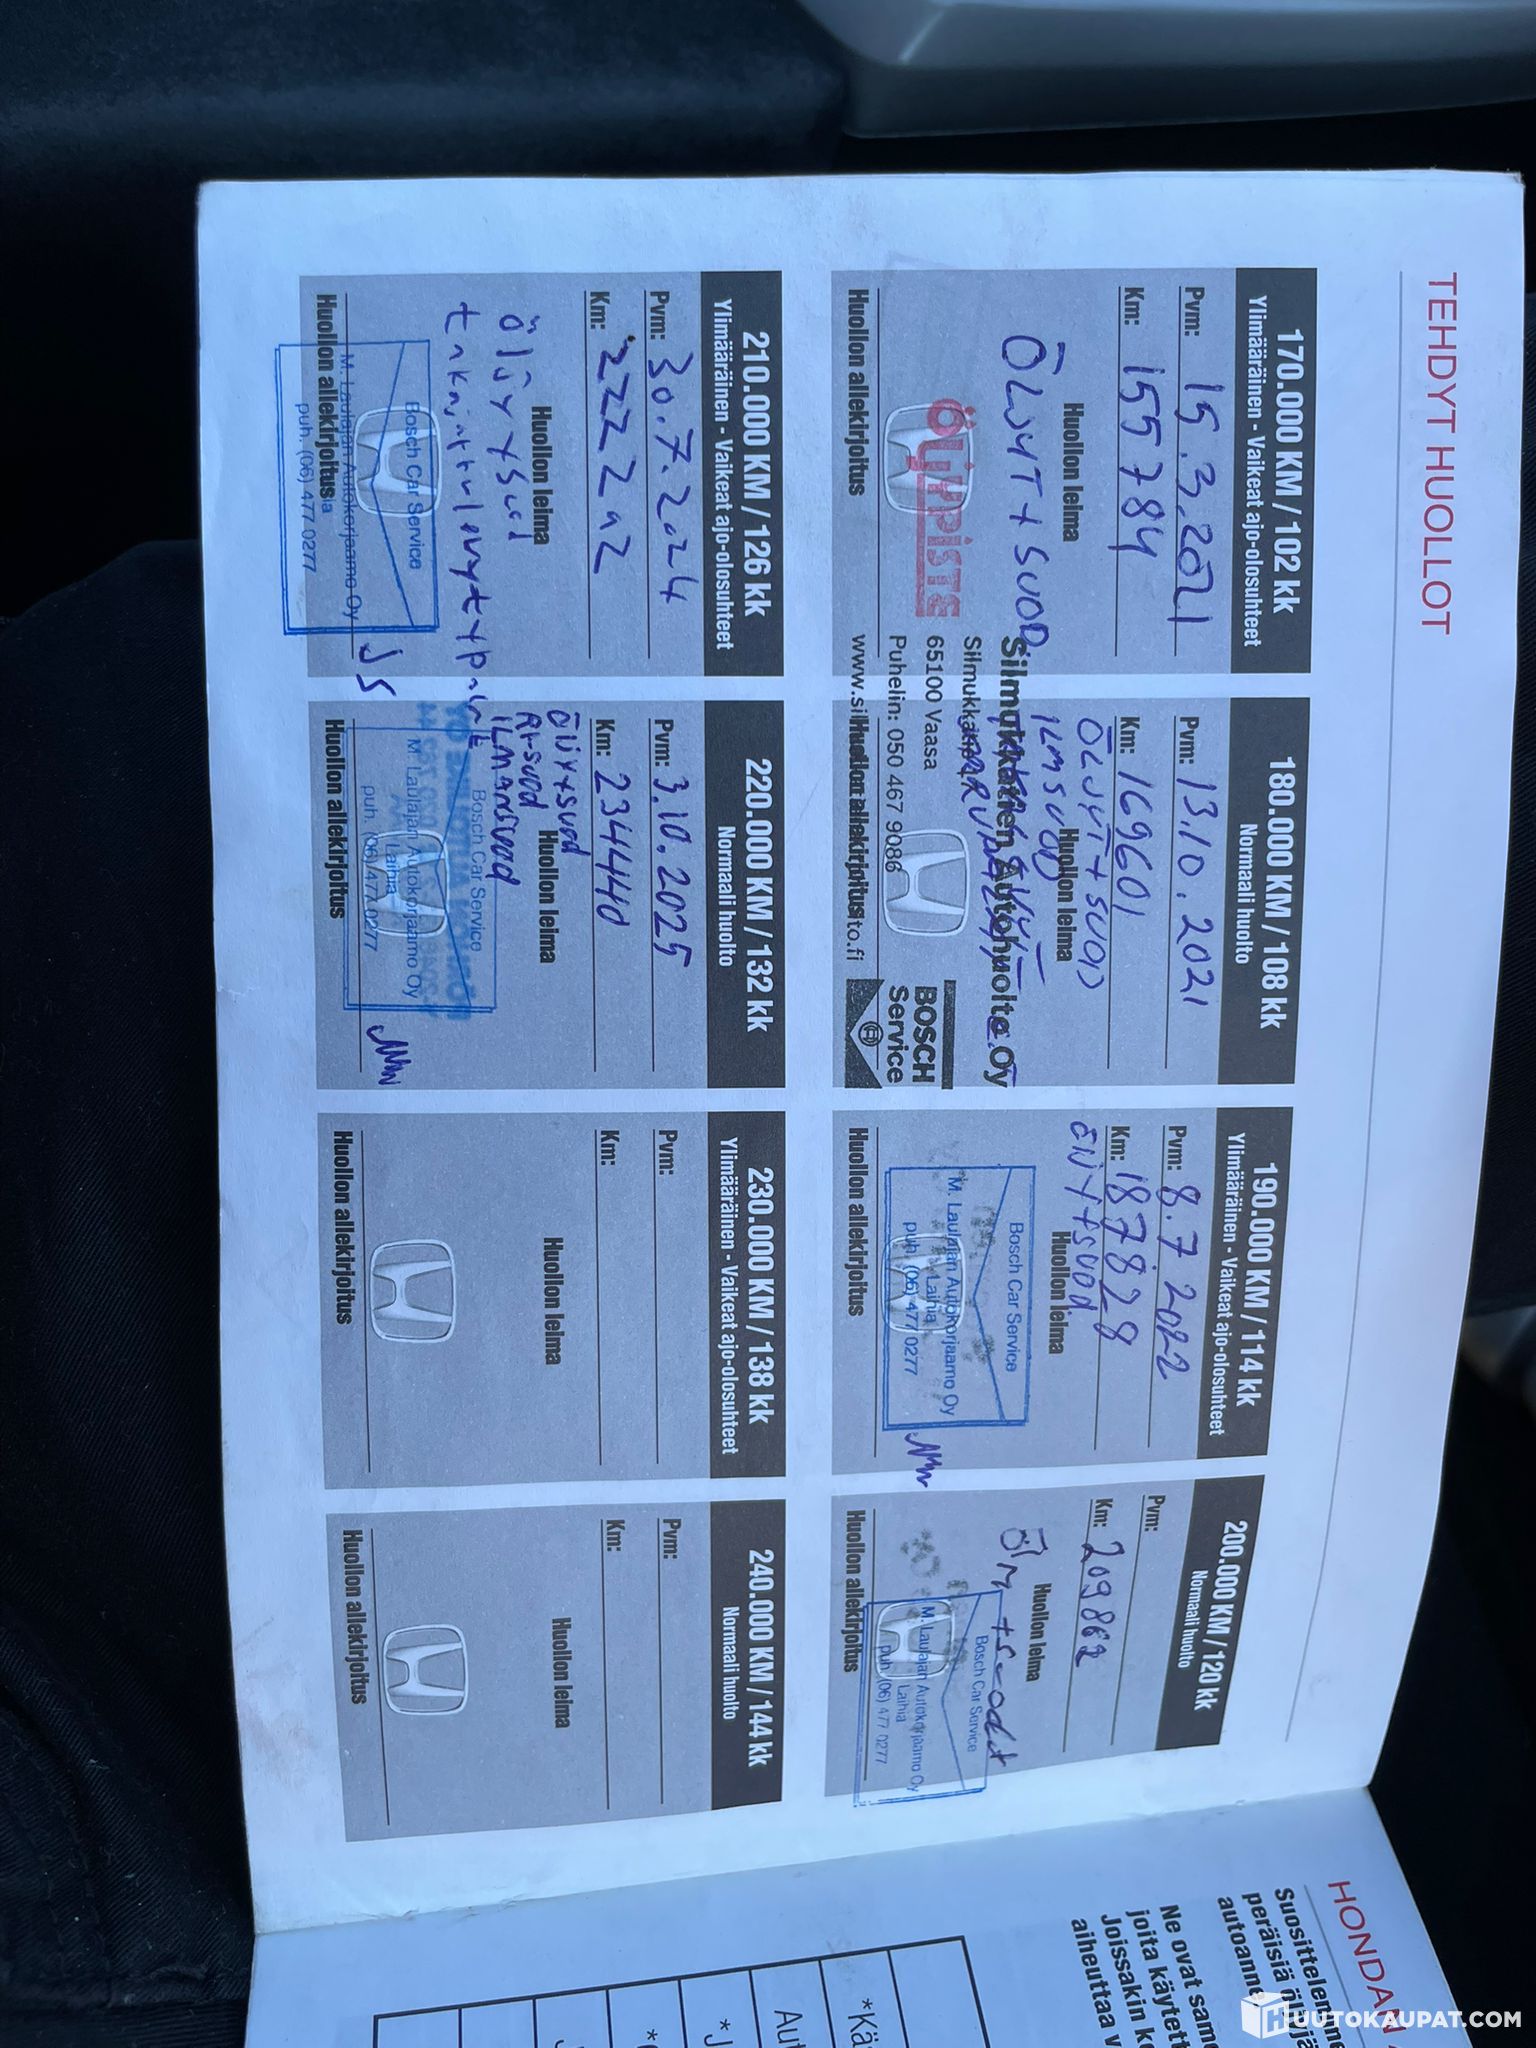 TEHDYT HUOLLOT
170.000 KM / 102 kk
Ylimääräinen - Vaikeat ajo-olosuhteet
Pvm: 15.3.2021
Km: 155784
Huollon leima
ÖLJYT + SUOD.
ÖLJYPISTE
Huollon allekirjoitus
180.000 KM / 108 kk
Normaali huolto
Pvm: 13.10.2021
Km: 169601
Huollon leima
ÖLJYT + SUOD
ILMSUOD
Silmukkatien Autohuolto Oy
65100 Vaasa
Puhelin: 050 467 9086
BOSCH
Service
Huollon allekirjoitus
190.000 KM / 114 kk
Ylimääräinen - Vaikeat ajo-olosuhteet
Pvm: 8.7 2022
Km: 187828
Huollon leima
+suod
Bosch Car Service
M. Laulajan Autokorjaamo Oy
Laihia
puh. (06) 477 0277
Huollon allekirjoitus
200.000 KM / 120 kk
Normaali huolto
Pvm:
Km: 209862
Huollon leima
Bosch Car Service
M. Laulajan Autokorjaamo Oy
Laihia
puh. (06) 477 0277
Huollon allekirjoitus
210.000 KM / 126 kk
Ylimääräinen - Vaikeat ajo-olosuhteet
Pvm: 30.7.2024
Km: 222202
Huollon leima
Öljy + suod
Bosch Car Service
M. Laulajan Autokorjaamo Oy
puh. (06) 477 0277
Huollon allekirjoitus
JS
220.000 KM / 132 kk
Normaali huolto
Pvm: 3.10.2025
Km: 234440
Huollon leima
ÖLJY+suod
RI-suod
ILMANSuod
Bosch Car Service
M. Laulajan Autokorjaamo Oy
Laihia
puh. (06) 477 0277
Huollon allekirjoitus
230.000 KM / 138 kk
Ylimääräinen - Vaikeat ajo-olosuhteet
Pvm:
Km:
Huollon leima
Huollon allekirjoitus
240.000 KM / 144 kk
Normaali huolto
Pvm:
Km:
Huollon leima
Huollon allekirjoitus
HONDAN
Suosittelemme
peräisiä öljyjä
autoanne
Ne ovat same
joita käytett
Joissakin k
aiheuttaa v
*Käs
Aut
*J
HUUTOKAUPAT.COM